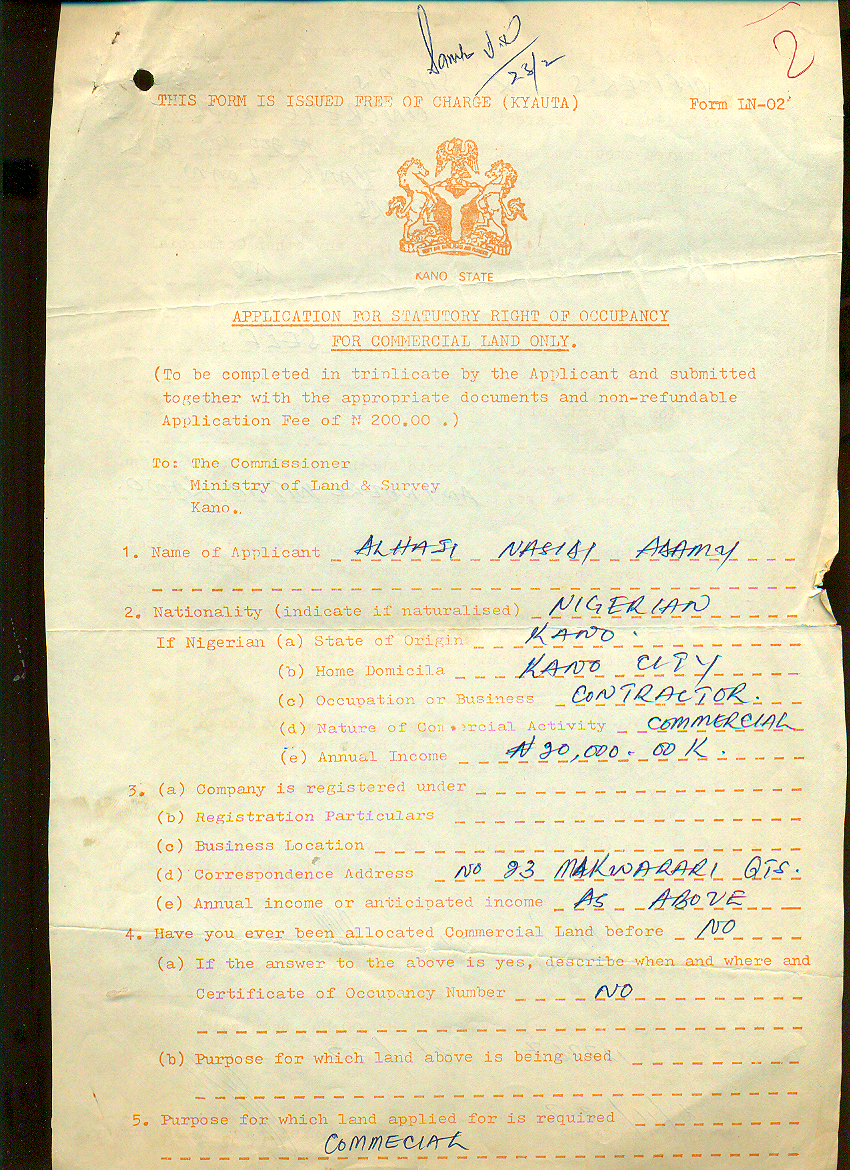 2
23/2
THIS FORM IS ISSUED FREE OF CHARGE (KYAUTA) Form LN-02
KANO STATE
APPLICATION FOR STATUTORY RIGHT OF OCCUPANCY
FOR COMMERCIAL LAND ONLY.
(To be completed in triplicate by the Applicant and submitted
together with the appropriate documents and non-refundable
Application Fee of N 200.00 .)
To: The Commissioner
Ministry of Land & Survey
Kano.
1. Name of Applicant ALHAJI NASIDI ADAMU
2. Nationality (indicate if naturalised) NIGERIAN
If Nigerian (a) State of Origin KANO.
(b) Home Domicila KANO CITY
(c) Occupation or Business CONTRACTOR.
(d) Nature of Commercial Activity COMMERCIAL
(e) Annual Income ₦20,000.00K.
3. (a) Company is registered under
(b) Registration Particulars
(c) Business Location
(d) Correspondence Address NO 23 MAKWARARI QTS.
(e) Annual income or anticipated income AS ABOVE
4. Have you ever been allocated Commercial Land before NO
(a) If the answer to the above is yes, describe when and where and
Certificate of Occupancy Number NO
(b) Purpose for which land above is being used
5. Purpose for which land applied for is required
COMMECIAL